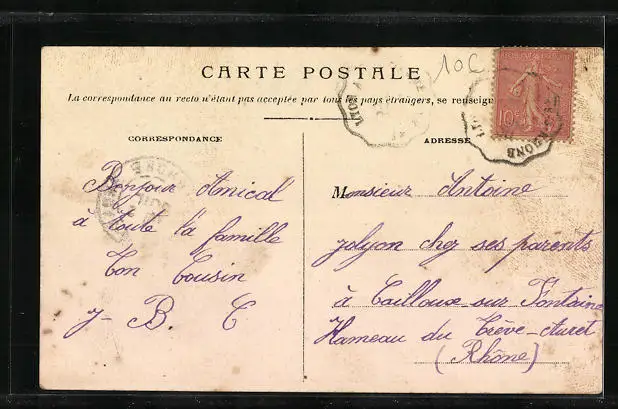 10c
CARTE POSTALE
La correspondance au recto n'étant pas acceptée par tous les pays étrangers, se renseign
CORRESPONDANCE
ADRESSE
10c
Bonjour Amical
à toute la famille
Ton Cousin
J- B. C
Monsieur Antoine
Jolyon chez ses parents
à Cailloux sur Fontaine
Hameau du Trêve-Auret
(Rhône)